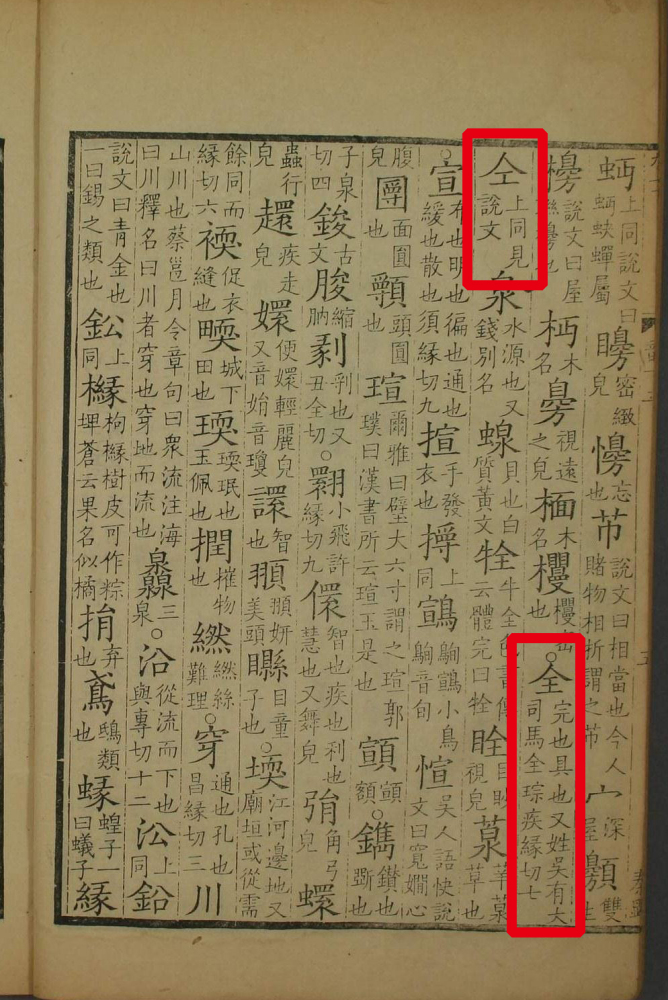 上同說文曰蚨蟬屬矏密緻皃忘也說文曰相當也今人賭物相折謂之宀深屋雙生
櫋說文曰屋櫋也木名臱視遠之皃木名。全完也具也又姓吳有大司馬全琮疾緣切七
仝上同見說文泉水源也又錢別名貝也白質黃文牷牛全色書傳云體完曰牷目眇視皃葲葲草也
。宣布也明也徧也通也緩也散也須緣切九揎手發衣也上同小鳥音旬愃吳人語快說文曰寬嫺心
腹皃圌面圓也頭圓也瑄爾雅曰璧大六寸謂之瑄郭璞曰漢書所云瑄玉是也額。鐫鑽也斲也
子泉切四鋑古文朘縮朒剶剝也又丑全切。翾小飛許緣切九儇智也疾也利也慧也又舞皃弲角弓皃蠉
蟲行皃疾走皃嬛便嬛輕麗皃又音娟音瓊譞智也妍美頭矎目童子也。堧江河邊地又廟垣或從需
餘同而緣切六促衣縫也城下田也珉也玉佩撋摧物也絲難理。穿通也孔也昌緣切三川
山川也蔡邕月令章句曰衆流注海曰川釋名曰川者穿也穿地而流也灥三泉。沿從流而下也與專切十二㳂上同鉛
說文曰青金也一曰錫之類也鈆上同櫞枸櫞樹皮可作粽埤蒼云果名似橘捐弃也鳶鴟類也蝝蝗子一曰蟻子緣